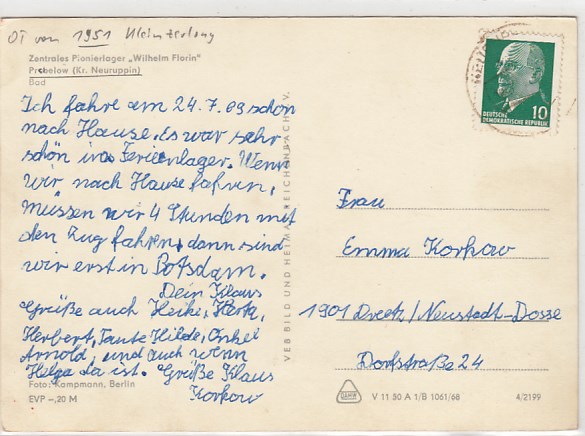 OT von 1951 Kleinzerlang
Zentrales Pionierlager „Wilhelm Florin"
Prebelow (Kr. Neuruppin)
Bad
Ich fahre am 24.7.69 schon
nach Hause. Es war sehr
schön im Ferienlager. Wenn
wir nach Hause fahren,
müssen wir 4 Stunden mit
den Zug fahren, dann sind
wir erst in Potsdam.
Dein Klaus
Grüße auch Heike, Herta,
Herbert, Tante Hilde, Onkel
Arnold, und auch wenn
Helga da ist. Grüße Klaus
Korkow
Foto: Kampmann, Berlin
EVP –,20 M
VEB BILD UND HEIMAT REICHENBACH I. V.
DEUTSCHE
DEMOKRATISCHE REPUBLIK
10
Frau
Emma Korkow
1901 Dreetz/Neustadt-Dosse
Dorfstraße 24
V 11 50 A 1/B 1061/68
4/2199